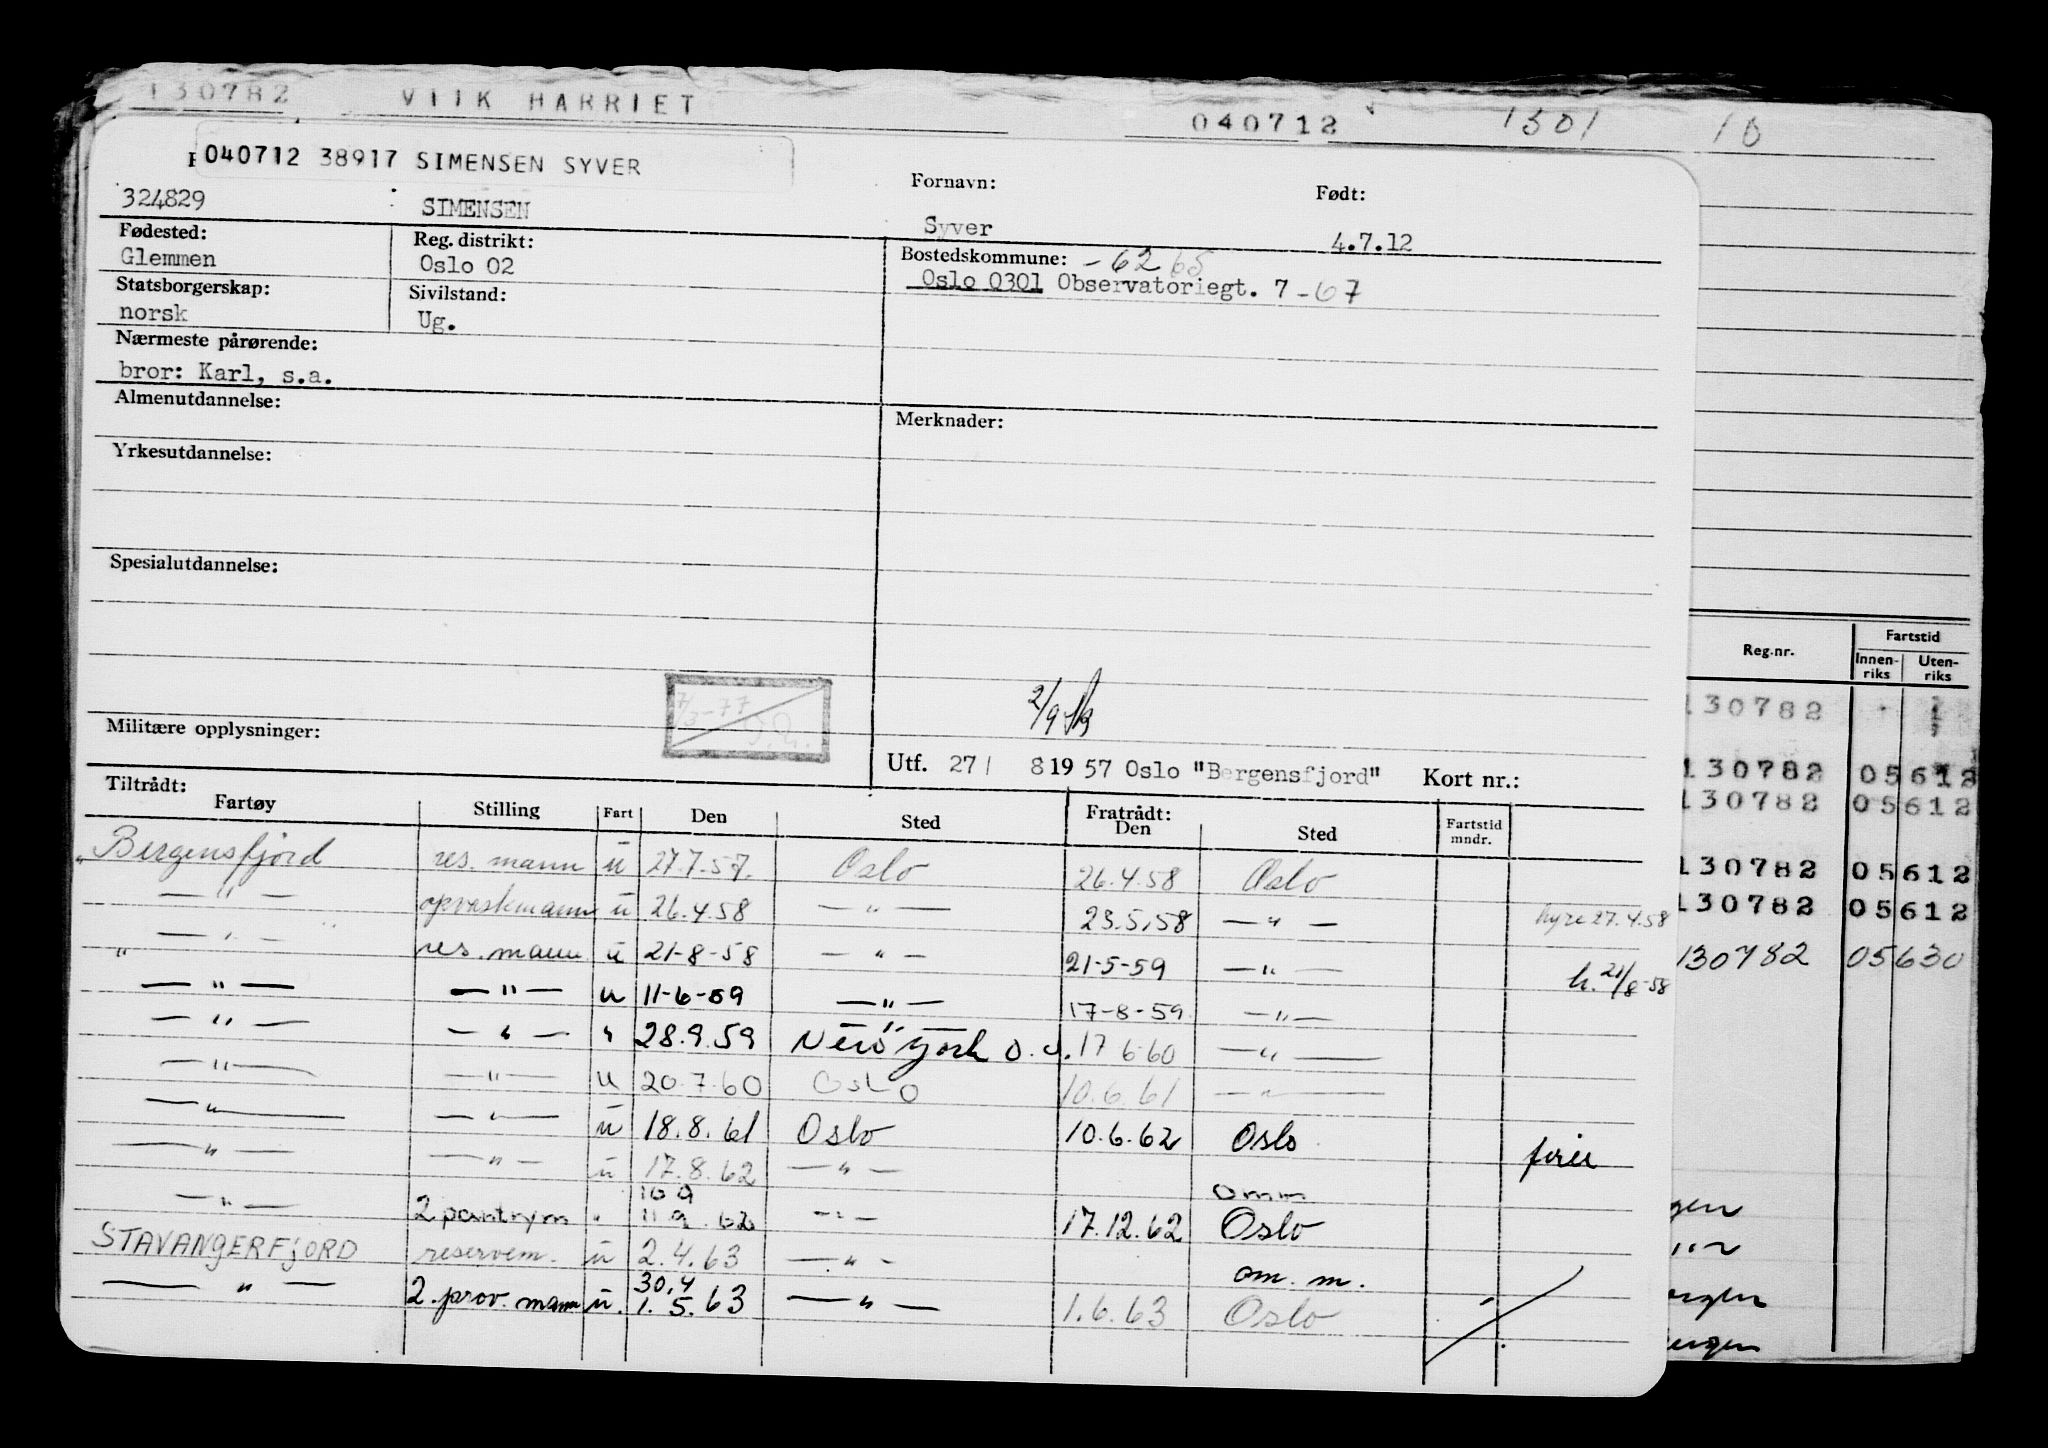 130782 VIIK HARRIET 040712 1301 10
040712 38917 SIMENSEN SYVER
Fornavn: Født:
324829 SIMENSEN Syver 4.7.12
Fødested: Reg. distrikt: Bostedskommune: -62 65
Glemmen Oslo 02 Oslo 0301 Observatoriegt. 7 -67
Statsborgerskap: Sivilstand:
norsk Ug.
Nærmeste pårørende:
bror: Karl, s.a.
Almenutdannelse: Merknader:
Yrkesutdannelse:
Spesialutdannelse:
7/3-77
2/9
Militære opplysninger:
Utf. 27/ 8 1957 Oslo "Bergensfjord" Kort nr.:
Tiltrådt: Fratrådt:
Fartøy Stilling Fart Den Sted Den Sted Fartstid mndr.
Bergensfjord res. mann u 27.7.57. Oslo 26.4.58 Oslo
— " — opvaskmann u 26.4.58 — " — 23.5.58 — " — hyre 27.4.58
— " — res. mann u 21-8-58 — " — 21-5-59 — " — h. 21/8-58
— " — — " — u 11-6-59 — " — 17-8-59 — " —
— " — — " — " 28.9.59 New York 17 6 60 — " —
— " — — " — u 20.7.60 Oslo 10.6.61 — " —
— " — — " — u 18.8.61 Oslo 10.6.62 Oslo
— " — — " — u 17.8.62 — " — omm
10 9
— " — 2 pantrym " 11.9.62 — " — 17.12.62 Oslo
STAVANGERFJORD reservem. u 2.4.63 — " — om. m.
30.4
— " — 2. prov. mann u. 1.5.63 — " — 1.6.63 Oslo
Reg.nr. Fartstid
Innenriks Utenriks
130782
130782 05612
130782 05612
130782 05612
130782 05612
130782 05630